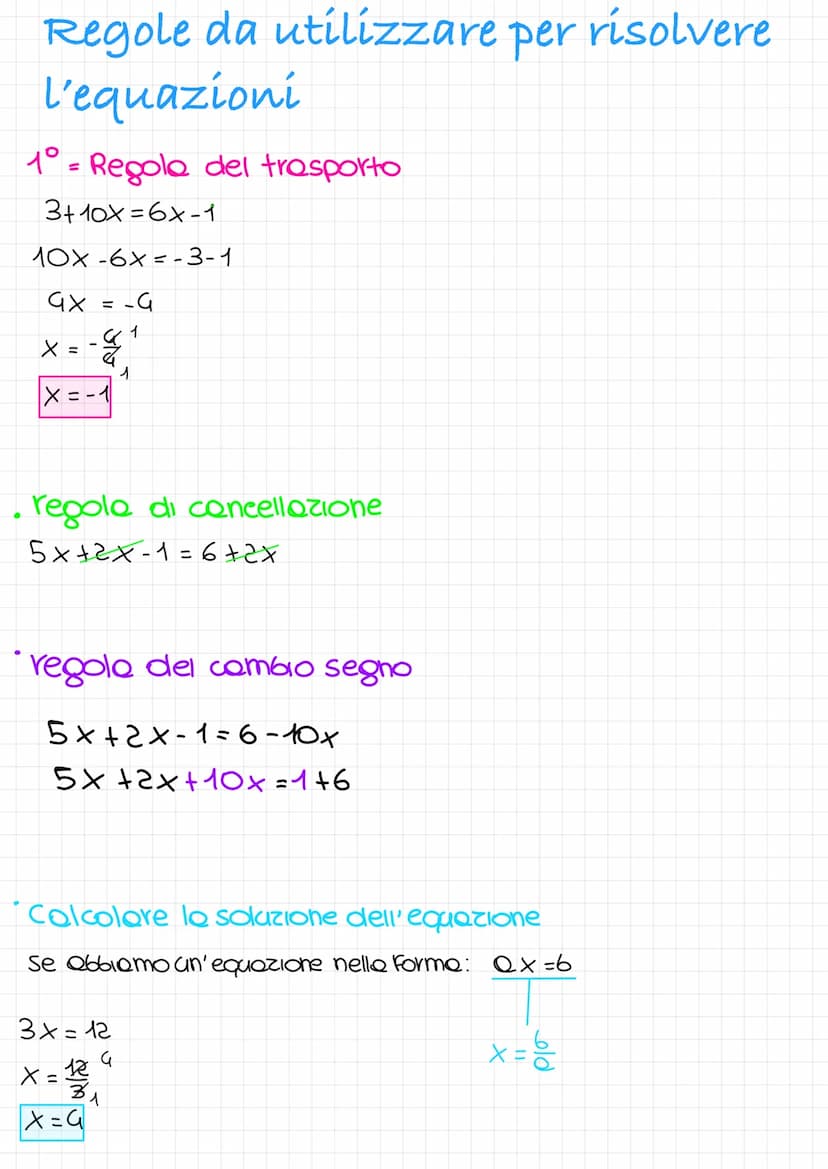 Regole da utilizzare per risolvere
l'equazioni
1° = Regola del trasporto
3+10x=6x-1
10x-6x=-3-1
4x = -4
x = -4/4 1 1
x=-1
. regola di cancellazione
5x+2x-1=6+2x
· regola del cambio segno
5x+2x-1=6-10x
5x+2x+10x=1+6
· Calcolare la soluzione dell'equazione
se abbiamo un'equazione nella forma: ax=b
3x=12
x=b/a
x=12/3 4 1
x=4